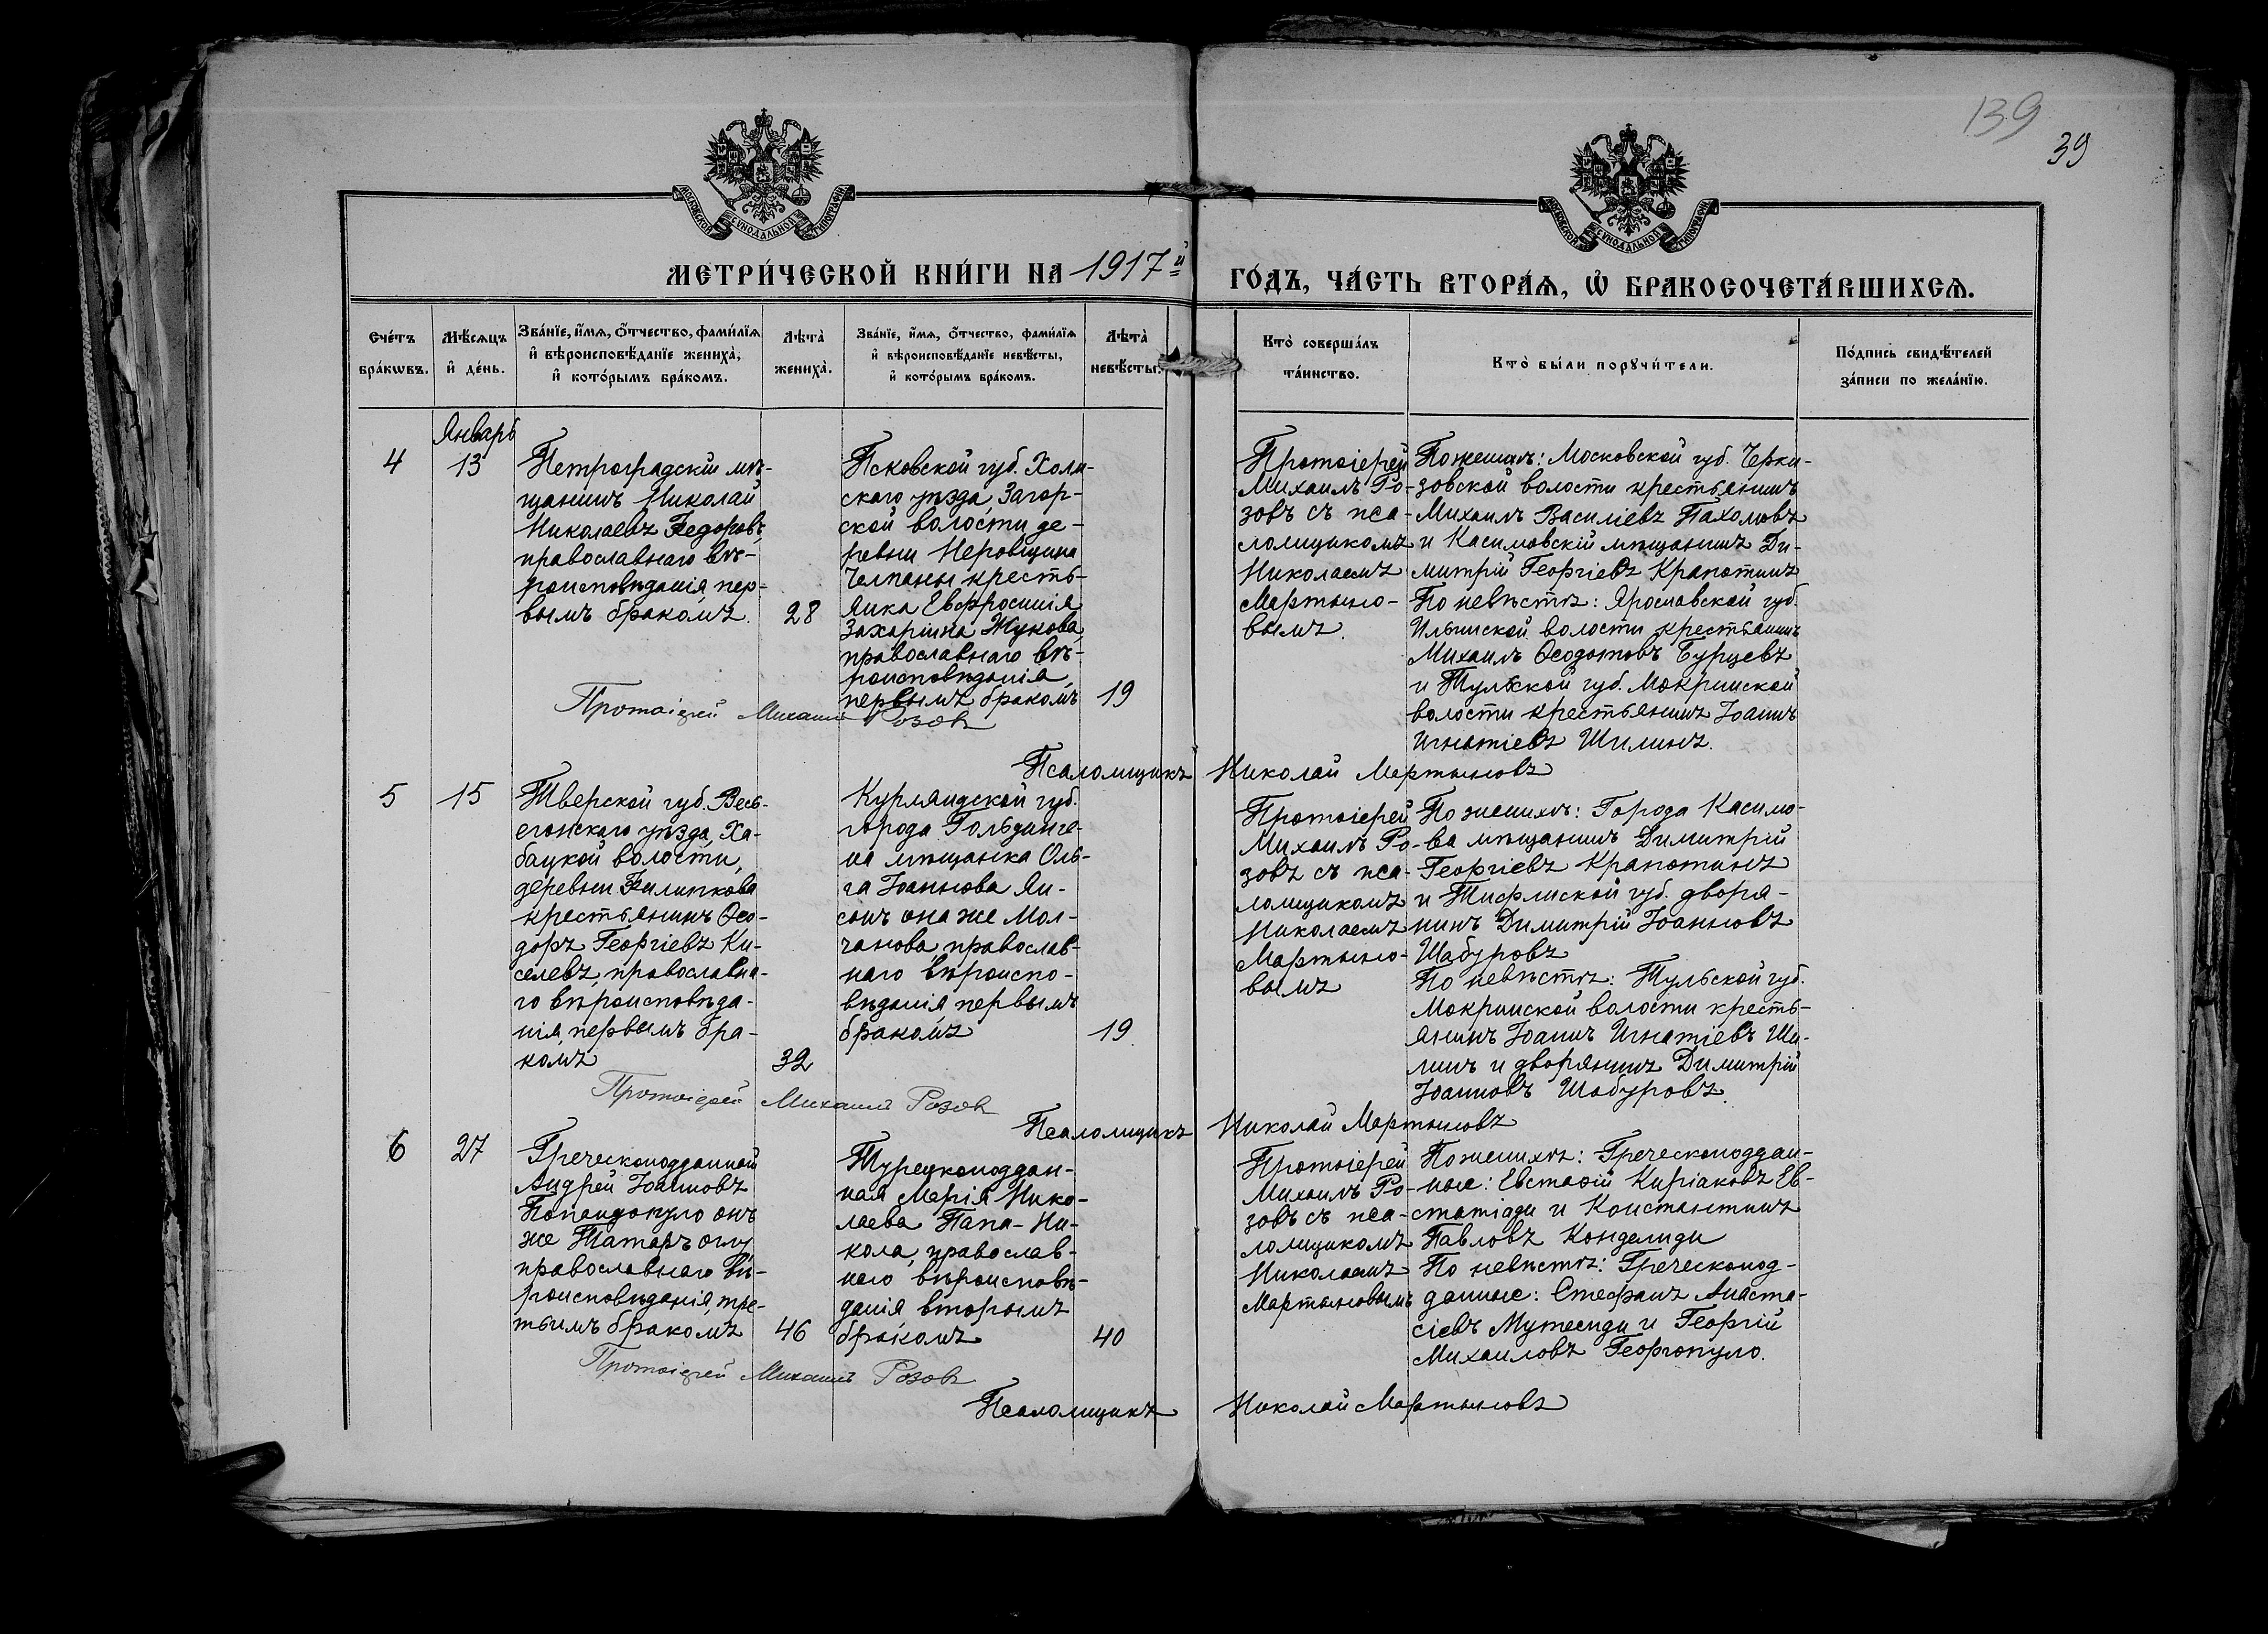 139
39
МОСКОВСКОЙ СУНОДАЛЬНОЙ ТИПОГРАФІИ
МОСКОВСКОЙ СУНОДАЛЬНОЙ ТИПОГРАФІИ
МЕТРИ́ЧЕСКОЙ КНИ́ГИ НА 1917й ГО́ДЪ, ЧА́СТЬ ВТОРА́Ѧ, Ѡ҆ БРАКОСОЧЕТА́ВШИХСѦ.
Сче́тъ
бра́кѡвъ.
Мѣ́сѧцъ
и҆ де́нь.
Зва́нїе, и҆́мѧ, ѻ҆́тчество, фами́лїѧ
и҆ вѣроисповѣ́данїе жениха̀,
и҆ кото́рымъ бра́комъ.
Лѣта̀
жениха̀.
Зва́нїе, и҆́мѧ, ѻ҆́тчество, фами́лїѧ
и҆ вѣроисповѣ́данїе невѣ́сты,
и҆ кото́рымъ бра́комъ.
Лѣта̀
невѣ́сты.
Кто̀ соверша́лъ
та́инство.
Кто̀ бы́ли порꙋчи́тели.
По́дпись свидѣ́телей
за́писи по жела́нїю.
Январь
4
13
Петроградскій мѣ-
щанинъ Николай
Николаевъ Федоровъ,
православнаго вѣ-
роисповѣданія, пер-
вымъ бракомъ.
28
Псковской губ. Холм-
скаго уѣзда, Загор-
ской волости де-
ревни Неровщина
Челпаны кресть-
янка Евфросинія
Захаріина Жукова,
православнаго вѣ-
роисповѣданія,
первымъ бракомъ
19
Протоіерей
Михаилъ Ро-
зовъ съ пса-
ломщикомъ
Николаемъ
Мартыно-
вымъ.
По женихѣ: Московской губ. Черки-
зовской волости крестьянинъ
Михаилъ Василіевъ Пахомовъ
и Касимовскій мѣщанинъ Ди-
митрій Георгіевъ Крапоткинъ
По невѣстѣ: Ярославской губ.
Ильинской волости крестьянинъ
Михаилъ Ѳеодотовъ Бурцевъ
и Тульской губ. Мокринской
волости крестьянинъ Іоаннъ
Игнатіевъ Шилинъ.
Протоіерей Михаилъ Розовъ
Псаломщикъ Николай Мартыновъ
5
15
Тверской губ. Весь-
егонскаго уѣзда, Ха-
бацкой волости,
деревни Филипкова
крестьянинъ Ѳео-
доръ Георгіевъ Ки-
селевъ, православна-
го вѣроисповѣда-
нія, первымъ бра-
комъ
32
Курляндской губ.
города Гольдинге-
на мѣщанка Оль-
га Іоаннова Ян-
сонъ она же Мол-
чанова, православ-
наго вѣроиспо-
вѣданія первымъ
бракомъ
19
Протоіерей
Михаилъ Ро-
зовъ съ пса-
ломщикомъ
Николаемъ
Мартыно-
вымъ
По женихѣ: Города Касимо-
ва мѣщанинъ Димитрій
Георгіевъ Крапоткинъ
и Тифлиской губ. дворя-
нинъ Димитрій Іоанновъ
Шабуровъ
По невѣстѣ: Тульской губ.
Мокринской волости кресть-
янинъ Іоаннъ Игнатіевъ Ши-
линъ и дворянинъ Димитрій
Іоанновъ Шабуровъ.
Протоіерей Михаилъ Розовъ
Псаломщикъ Николай Мартыновъ
6
27
Греческоподданный
Андрей Іоанновъ
Попандопуло онъ
же Татаръ оглу,
православнаго вѣ-
роисповѣданія, тре-
тьимъ бракомъ
46
Турецкоподдан-
ная Марія Нико-
лаева Папа-Ни-
кола, православ-
наго вѣроисповѣ-
данія вторымъ
бракомъ
40
Протоіерей
Михаилъ Ро-
зовъ съ пса-
ломщикомъ
Николаемъ
Мартыновымъ
По женихѣ: Греческоподдан-
ные: Евстафій Киріаковъ Ев-
статіади и Константинъ
Павловъ Конделиди
По невѣстѣ: Греческопод-
данные: Стефанъ Анаста-
сіевъ Мутесиди и Георгій
Михаиловъ Георгопуло.
Протоіерей Михаилъ Розовъ
Псаломщикъ Николай Мартыновъ